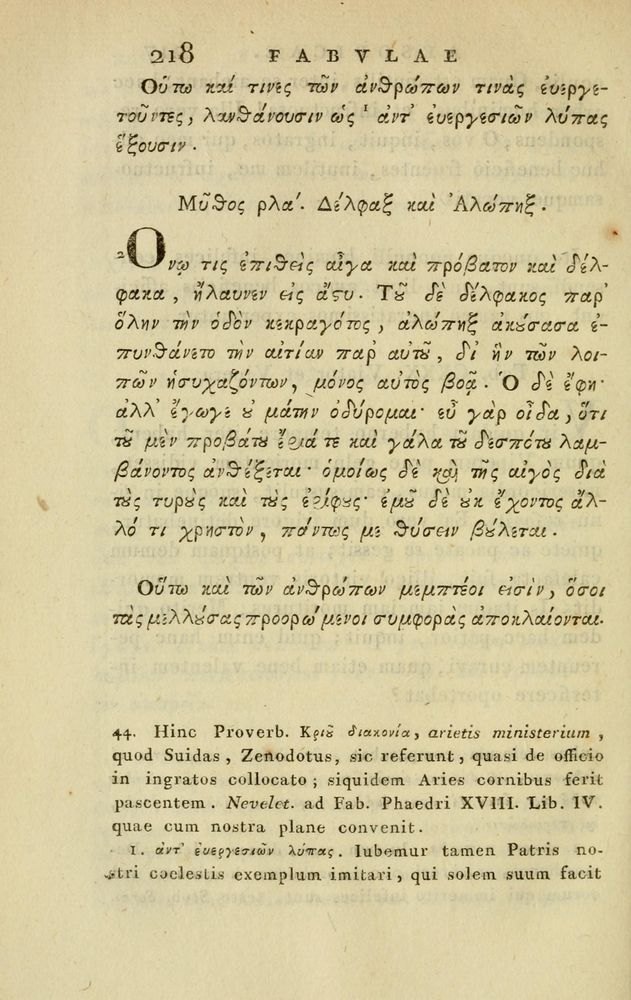 218 FABVLAE
Οὕτω καί τινες τῶν ἀνθρώπων τινὰς ἐυεργε-
τοῦντες, λανθάνουσιν ὡς ¹ ἀντ᾽ ἐυεργεσιῶν λύπας
ἕξουσιν.
Μῦθος ρλα΄. Δέλφαξ καὶ Ἀλώπηξ.
² Ὄνῳ τις ἐπιθεὶς αἶγα καὶ πρόβατον καὶ δέλ-
φακα, ἤλαυνεν εἰς ἄστυ. Τοῦ δὲ δέλφακος παρ᾽
ὅλην τὴν ὁδὸν κεκραγότος, ἀλώπηξ ἀκούσασα ἐ-
πυνθάνετο τὴν αἰτίαν παρ᾽ αὐτοῦ, δι᾽ ἣν τῶν λοι-
πῶν ἡσυχαζόντων, μόνος αὐτὸς βοᾷ. Ὁ δὲ ἔφη·
ἀλλ᾽ ἔγωγε οὐ μάτην ὀδύρομαι· εὖ γὰρ οἶδα, ὅτι
τοῦ μὲν προβάτου ἔριά τε καὶ γάλα τοῦ δεσπότου λαμ-
βάνοντος ἀνθέξεται· ὁμοίως δὲ καὶ τῆς αἰγὸς διὰ
τοὺς τυροὺς καὶ τοὺς ἐρίφους· ἐμοῦ δὲ οὐκ ἔχοντος ἄλ-
λό τι χρηστὸν, πάντως με θύσειν βούλεται.
Οὕτω καὶ τῶν ἀνθρώπων μεμπτέοι εἰσὶν, ὅσοι
τὰς μελλούσας προορώμενοι συμφορὰς ἀποκλαίονται.
44. Hinc Proverb. Κριοῦ διακονία, arietis ministerium,
quod Suidas, Zenodotus, sic referunt, quasi de officio
in ingratos collocato; siquidem Aries cornibus ferit
pascentem. Nevelet. ad Fab. Phaedri XVIII. Lib. IV.
quae cum nostra plane convenit.
1. ἀντ᾽ ἐυεργεσιῶν λύπας. Iubemur tamen Patris no-
stri coelestis exemplum imitari, qui solem suum facit